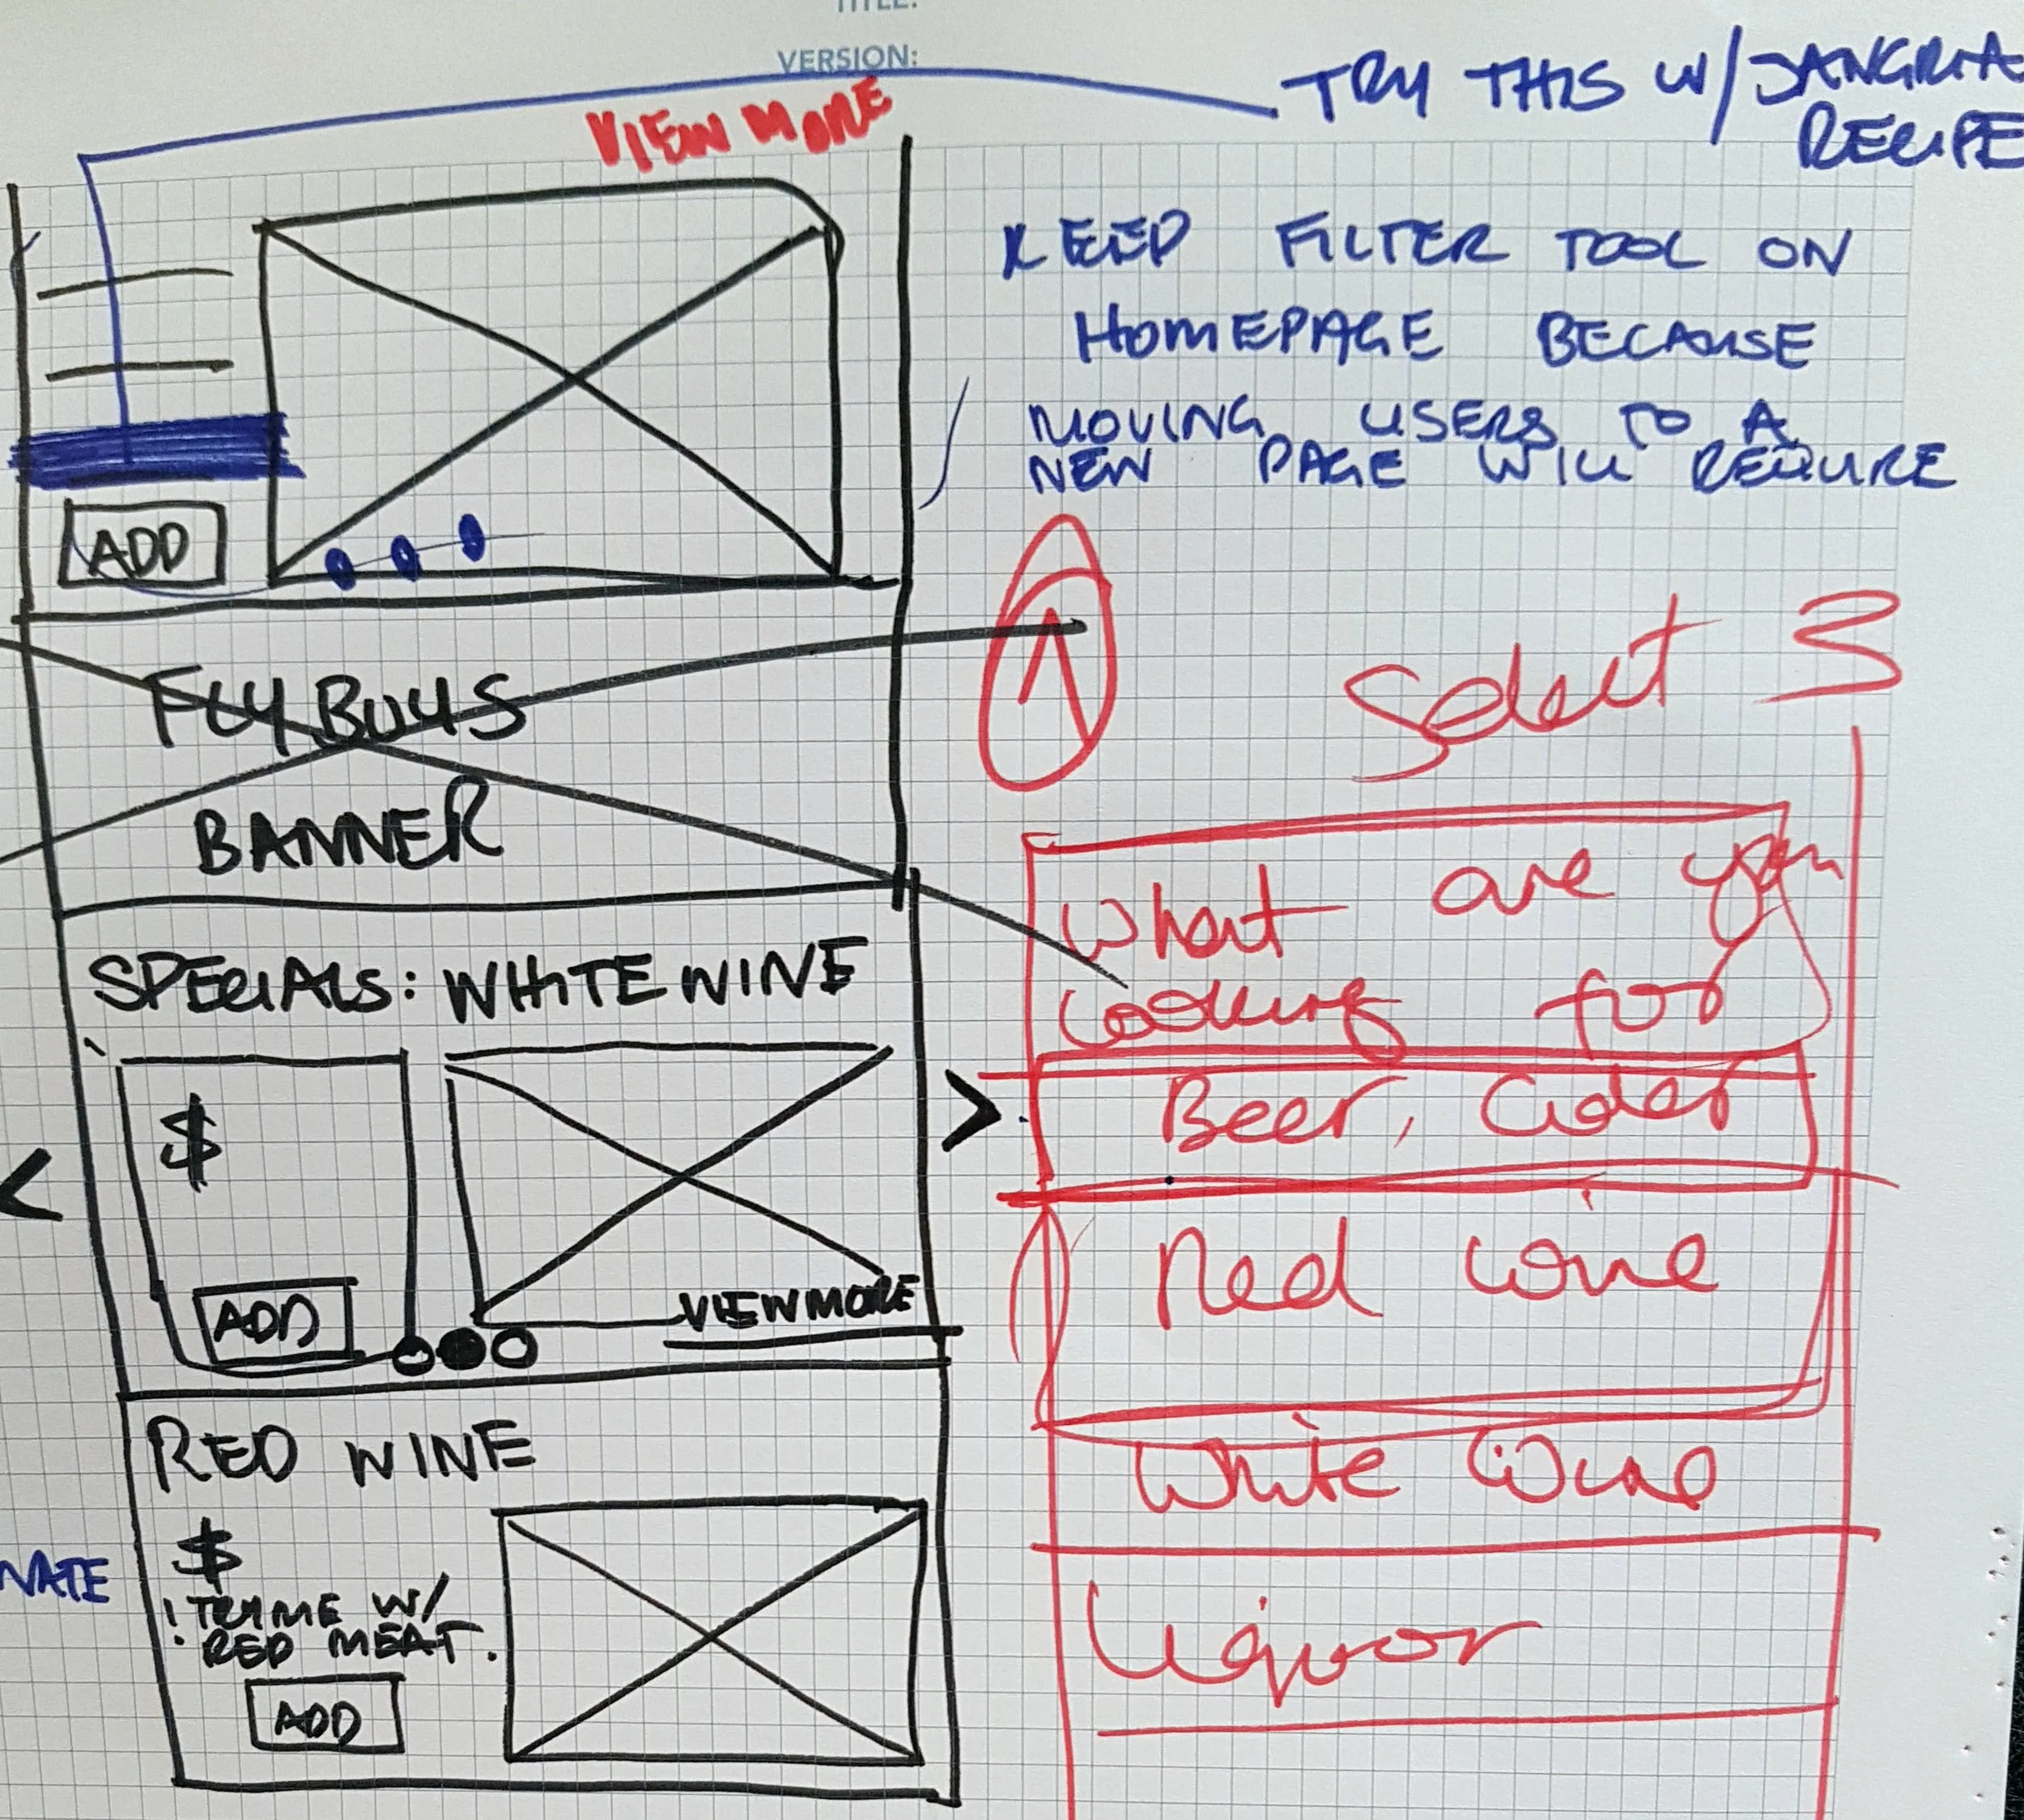 TITLE:
VERSION:
VIEW MORE
TRY THIS W/ SANGRIA
RECIPE
KEEP FILTER TOOL ON
HOMEPAGE BECAUSE
MOVING USERS TO A
NEW PAGE WILL REQUIRE
ADD
FLY BUYS
BANNER
SPECIALS: WHITE WINE
$
ADD
VIEW MORE
<
>
RED WINE
$
! TRY ME W/
RED MEAT.
ADD
NATE
Select 3
What are you
looking for
Beer, Cider
Red wine
White Wine
Liquor